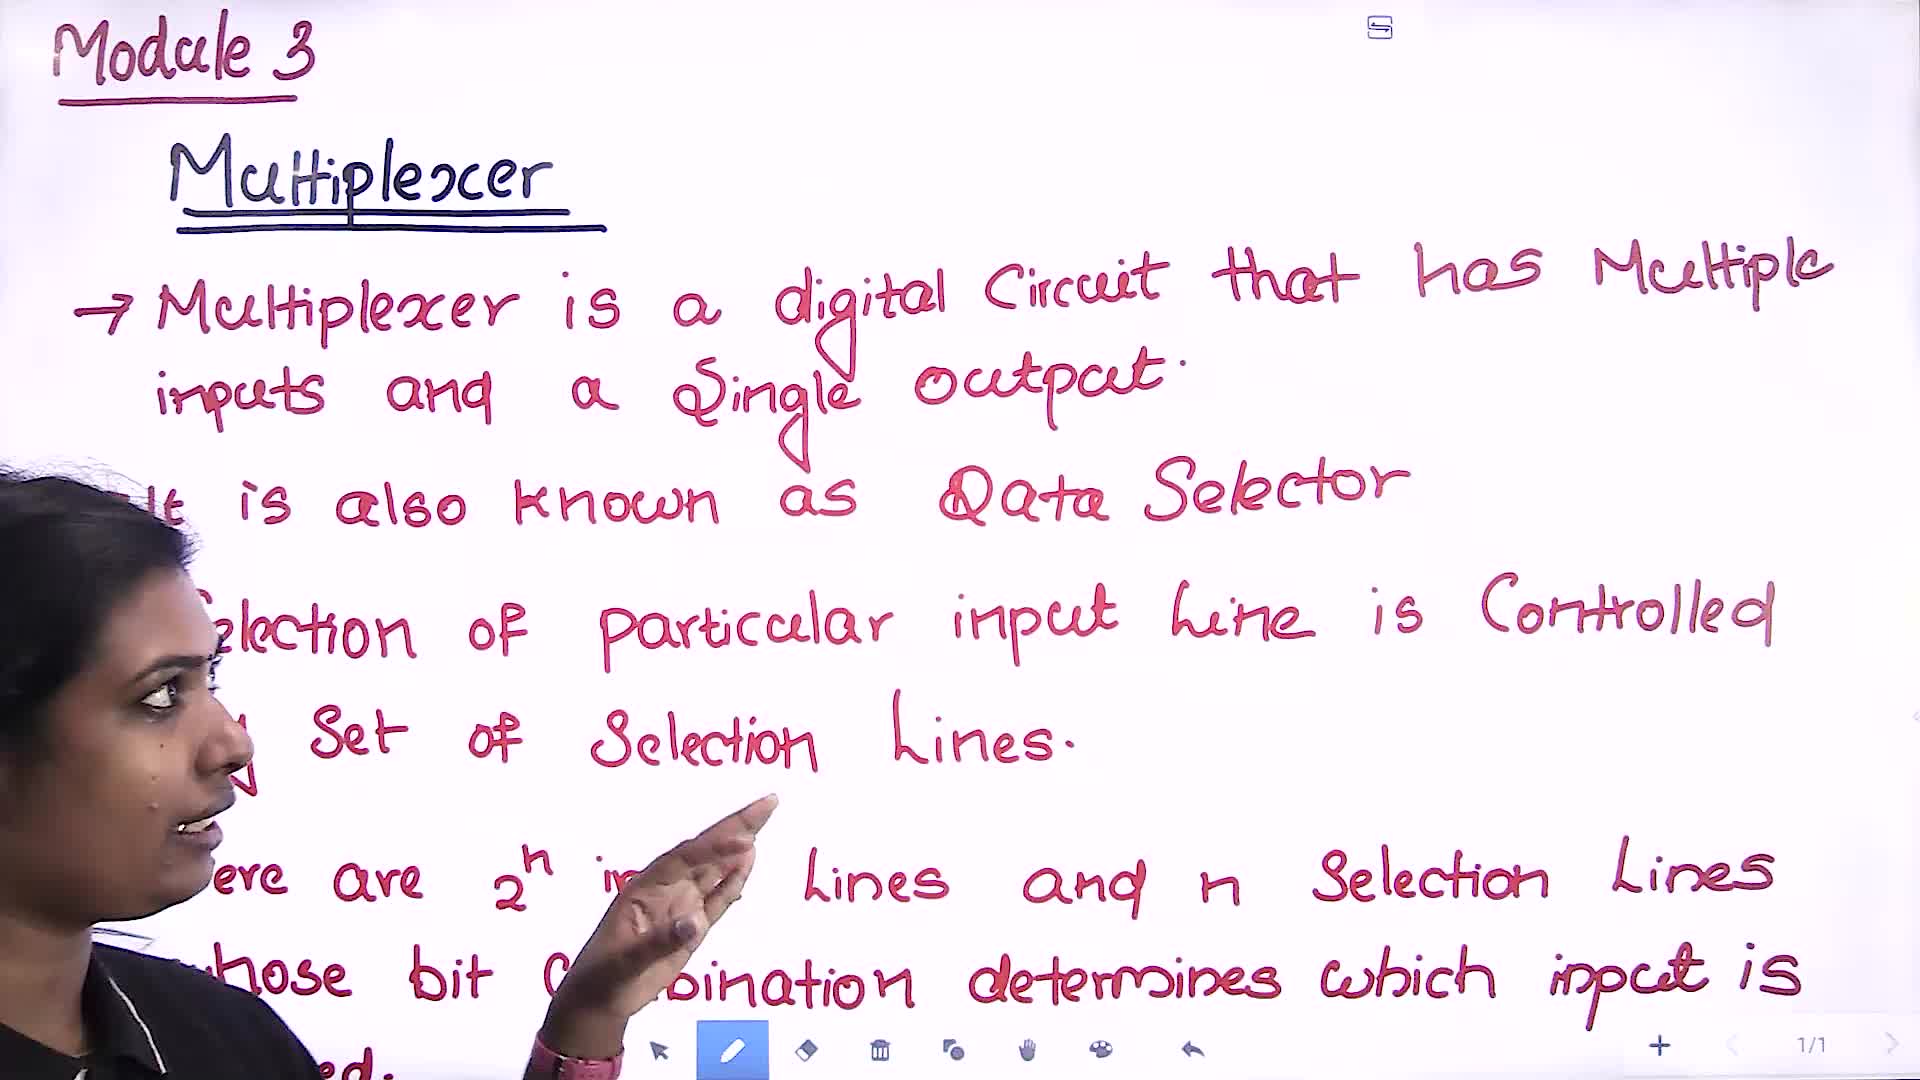 Module 3
Multiplexer
→ Multiplexer is a digital Circuit that has Multiple
inputs and a Single output.
It is also known as Data Selector
election of particular input Line is Controlled
Set of Selection Lines.
ere are 2ⁿ Lines and n Selection Lines
hose bit bination determines which input is
ed.
1/1